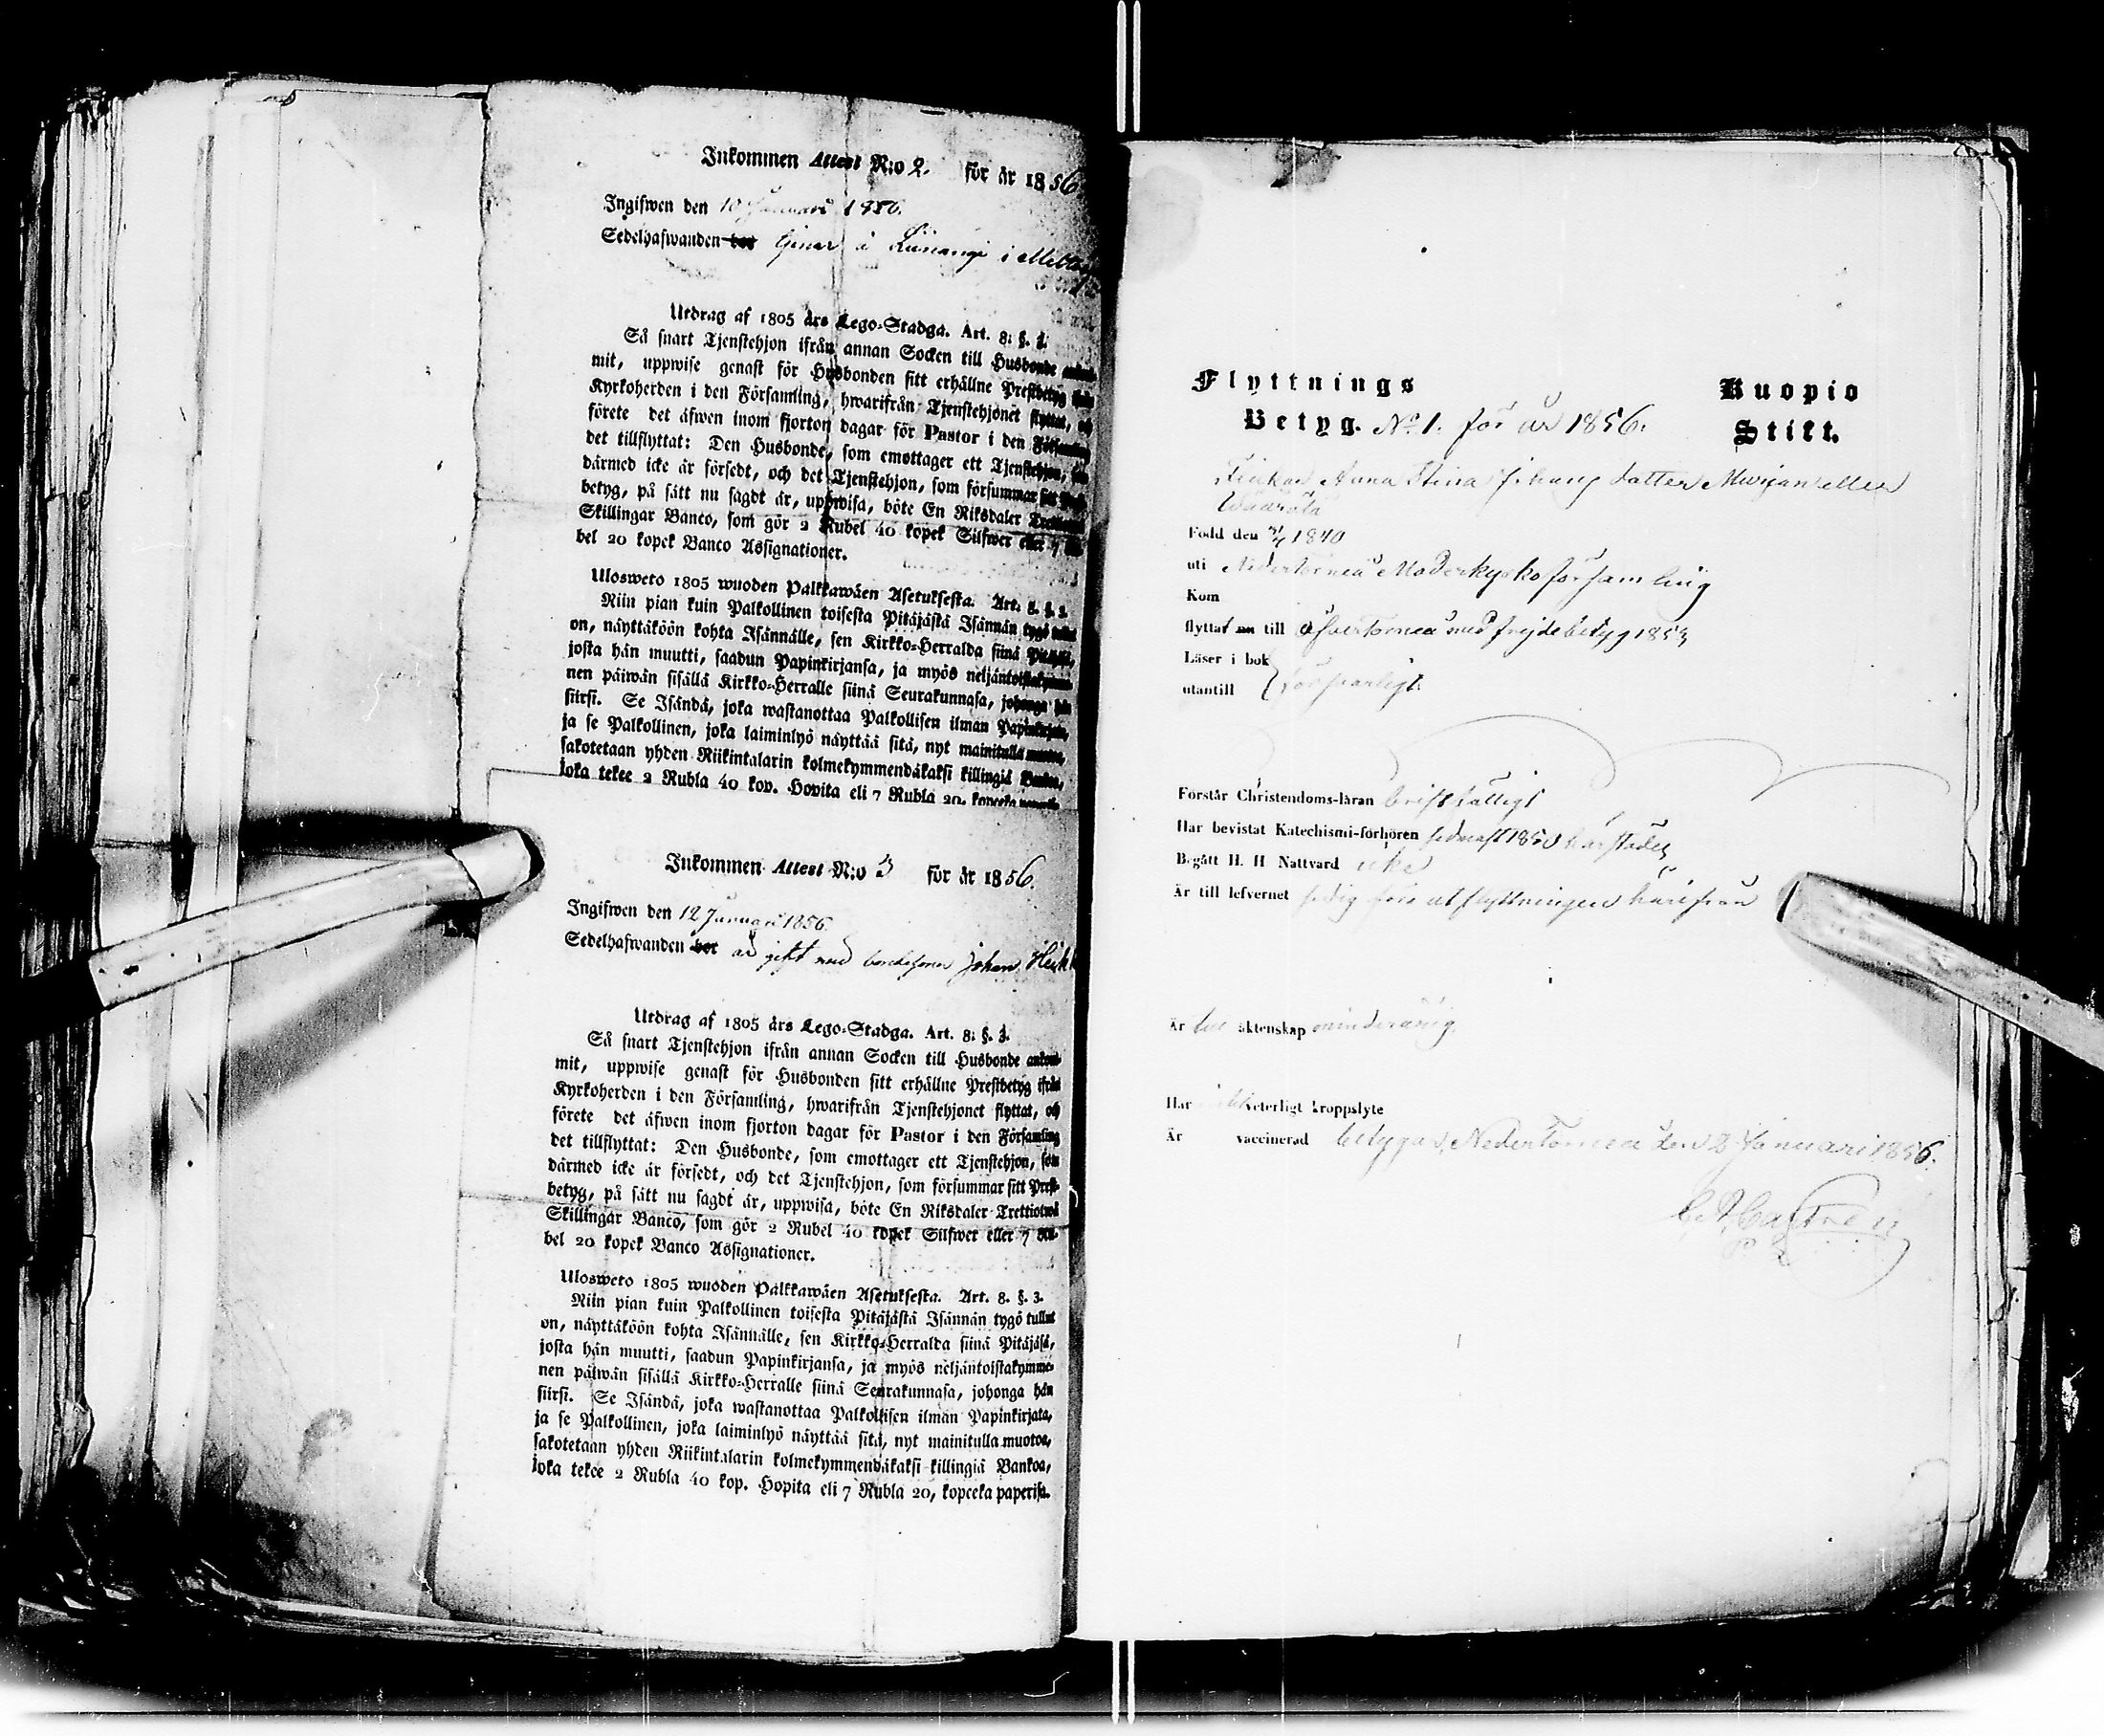 Inkommen Attest N:o 2. för år 1856
Ingifwen den 10 Januari 1856.
Sedelhafwanden bor tjenar å i
Utdrag af 1805 års Lego-Stadga. Art. 8: §. 3.
Så snart Tjenstehjon ifrån annan Socken till Husbonde ankom-
mit, uppwise genast för Husbonden sitt erhållne Prestbetyg ifrån
Kyrkoherden i den Församling, hwarifrån Tjenstehjonet flyttat, och
förete det äfwen inom fjorton dagar för Pastor i den Församling
det tillflyttat: Den Husbonde, som emottager ett Tjenstehjon, som
därmed icke är försedt, och det Tjenstehjon, som försummar sitt Prest-
betyg, på sätt nu sagdt är, uppwisa, böte En Riksdaler Trettiotwå
Skillingar Banco, som gör 2 Rubel 40 kopek Silfwer eller 7 Ru-
bel 20 kopek Banco Assignationer.
Ulosweto 1805 wuoden Palkkawäen Asetuksesta. Art. 8. §. 3.
Niin pian kuin Palkollinen toisesta Pitäjästä Isännän tygö tullut
on, näyttäköön kohta Isännälle, sen Kirkko-Herralda siinä Pitäjäsä,
josta hän muutti, saadun Papinkirjansa, ja myös neljäntoistakymme-
nen päiwän sisällä Kirkko-Herralle siinä Seurakunnasa, johonga hän
siirsi. Se Isändä, joka wastanottaa Palkollisen ilman Papinkirjata,
ja se Palkollinen, joka laiminlyö näyttää sitä, nyt mainitulla muotoa,
sakotetaan yhden Riikintalarin kolmekymmendäkaksi killingiä Bankoa,
joka tekee 2 Rubla 40 kop. Hopita eli 7 Rubla 20, kopeeka
Inkommen Attest N:o 3 för år 1856.
Ingifwen den 12 Januari 1856.
Sedelhafwanden bor är gift med bondesonen Johan
Utdrag af 1805 års Lego-Stadga. Art. 8: §. 3.
Så snart Tjenstehjon ifrån annan Socken till Husbonde ankom-
mit, uppwise genast för Husbonden sitt erhållne Prestbetyg ifrån
Kyrkoherden i den Församling, hwarifrån Tjenstehjonet flyttat, och
förete det äfwen inom fjorton dagar för Pastor i den Församling
det tillflyttat: Den Husbonde, som emottager ett Tjenstehjon, som
därmed icke är försedt, och det Tjenstehjon, som försummar sitt Prest-
betyg, på sätt nu sagdt är, uppwisa, böte En Riksdaler Trettiotwå
Skillingar Banco, som gör 2 Rubel 40 kopek Silfwer eller 7 Ru-
bel 20 kopek Banco Assignationer.
Ulosweto 1805 wuoden Palkkawäen Asetuksesta. Art. 8. §. 3.
Niin pian kuin Palkollinen toisesta Pitäjästä Isännän tygö tullut
on, näyttäköön kohta Isännälle, sen Kirkko-Herralda siinä Pitäjäsä,
josta hän muutti, saadun Papinkirjansa, ja myös neljäntoistakymme-
nen päiwän sisällä Kirkko-Herralle siinä Seurakunnasa, johonga hän
siirsi. Se Isändä, joka wastanottaa Palkollisen ilman Papinkirjata,
ja se Palkollinen, joka laiminlyö näyttää sitä, nyt mainitulla muotoa,
sakotetaan yhden Riikintalarin kolmekymmendäkaksi killingiä Bankoa,
joka tekee 2 Rubla 40 kop. Hopita eli 7 Rubla 20, kopeeka paperisa.
Flyttnings Kuopio
Betyg. No 1. för år 1856. Stift.
Flickan Anna Stina Johans dotter eller
Född den 1840
uti Nedertorneå Moderkyrkoförsamling
Kom
flyttat nu till Öfvertorneå med frejdebetyg 1853
Läser i bok
utantill försvarligt
Förstår Christendoms-läran bristfälligt
Har bevistat Katechismi-förhören sednast 1850 härstädes
Begått H. H Nattvard icke
Är till lefvernet före utflyttningen härifrån
Är till äktenskap minderårig.
Har veterligt kroppslyte
Är vaccinerad betygar, Nedertorneå den 2 Januari 1856.
Castrén